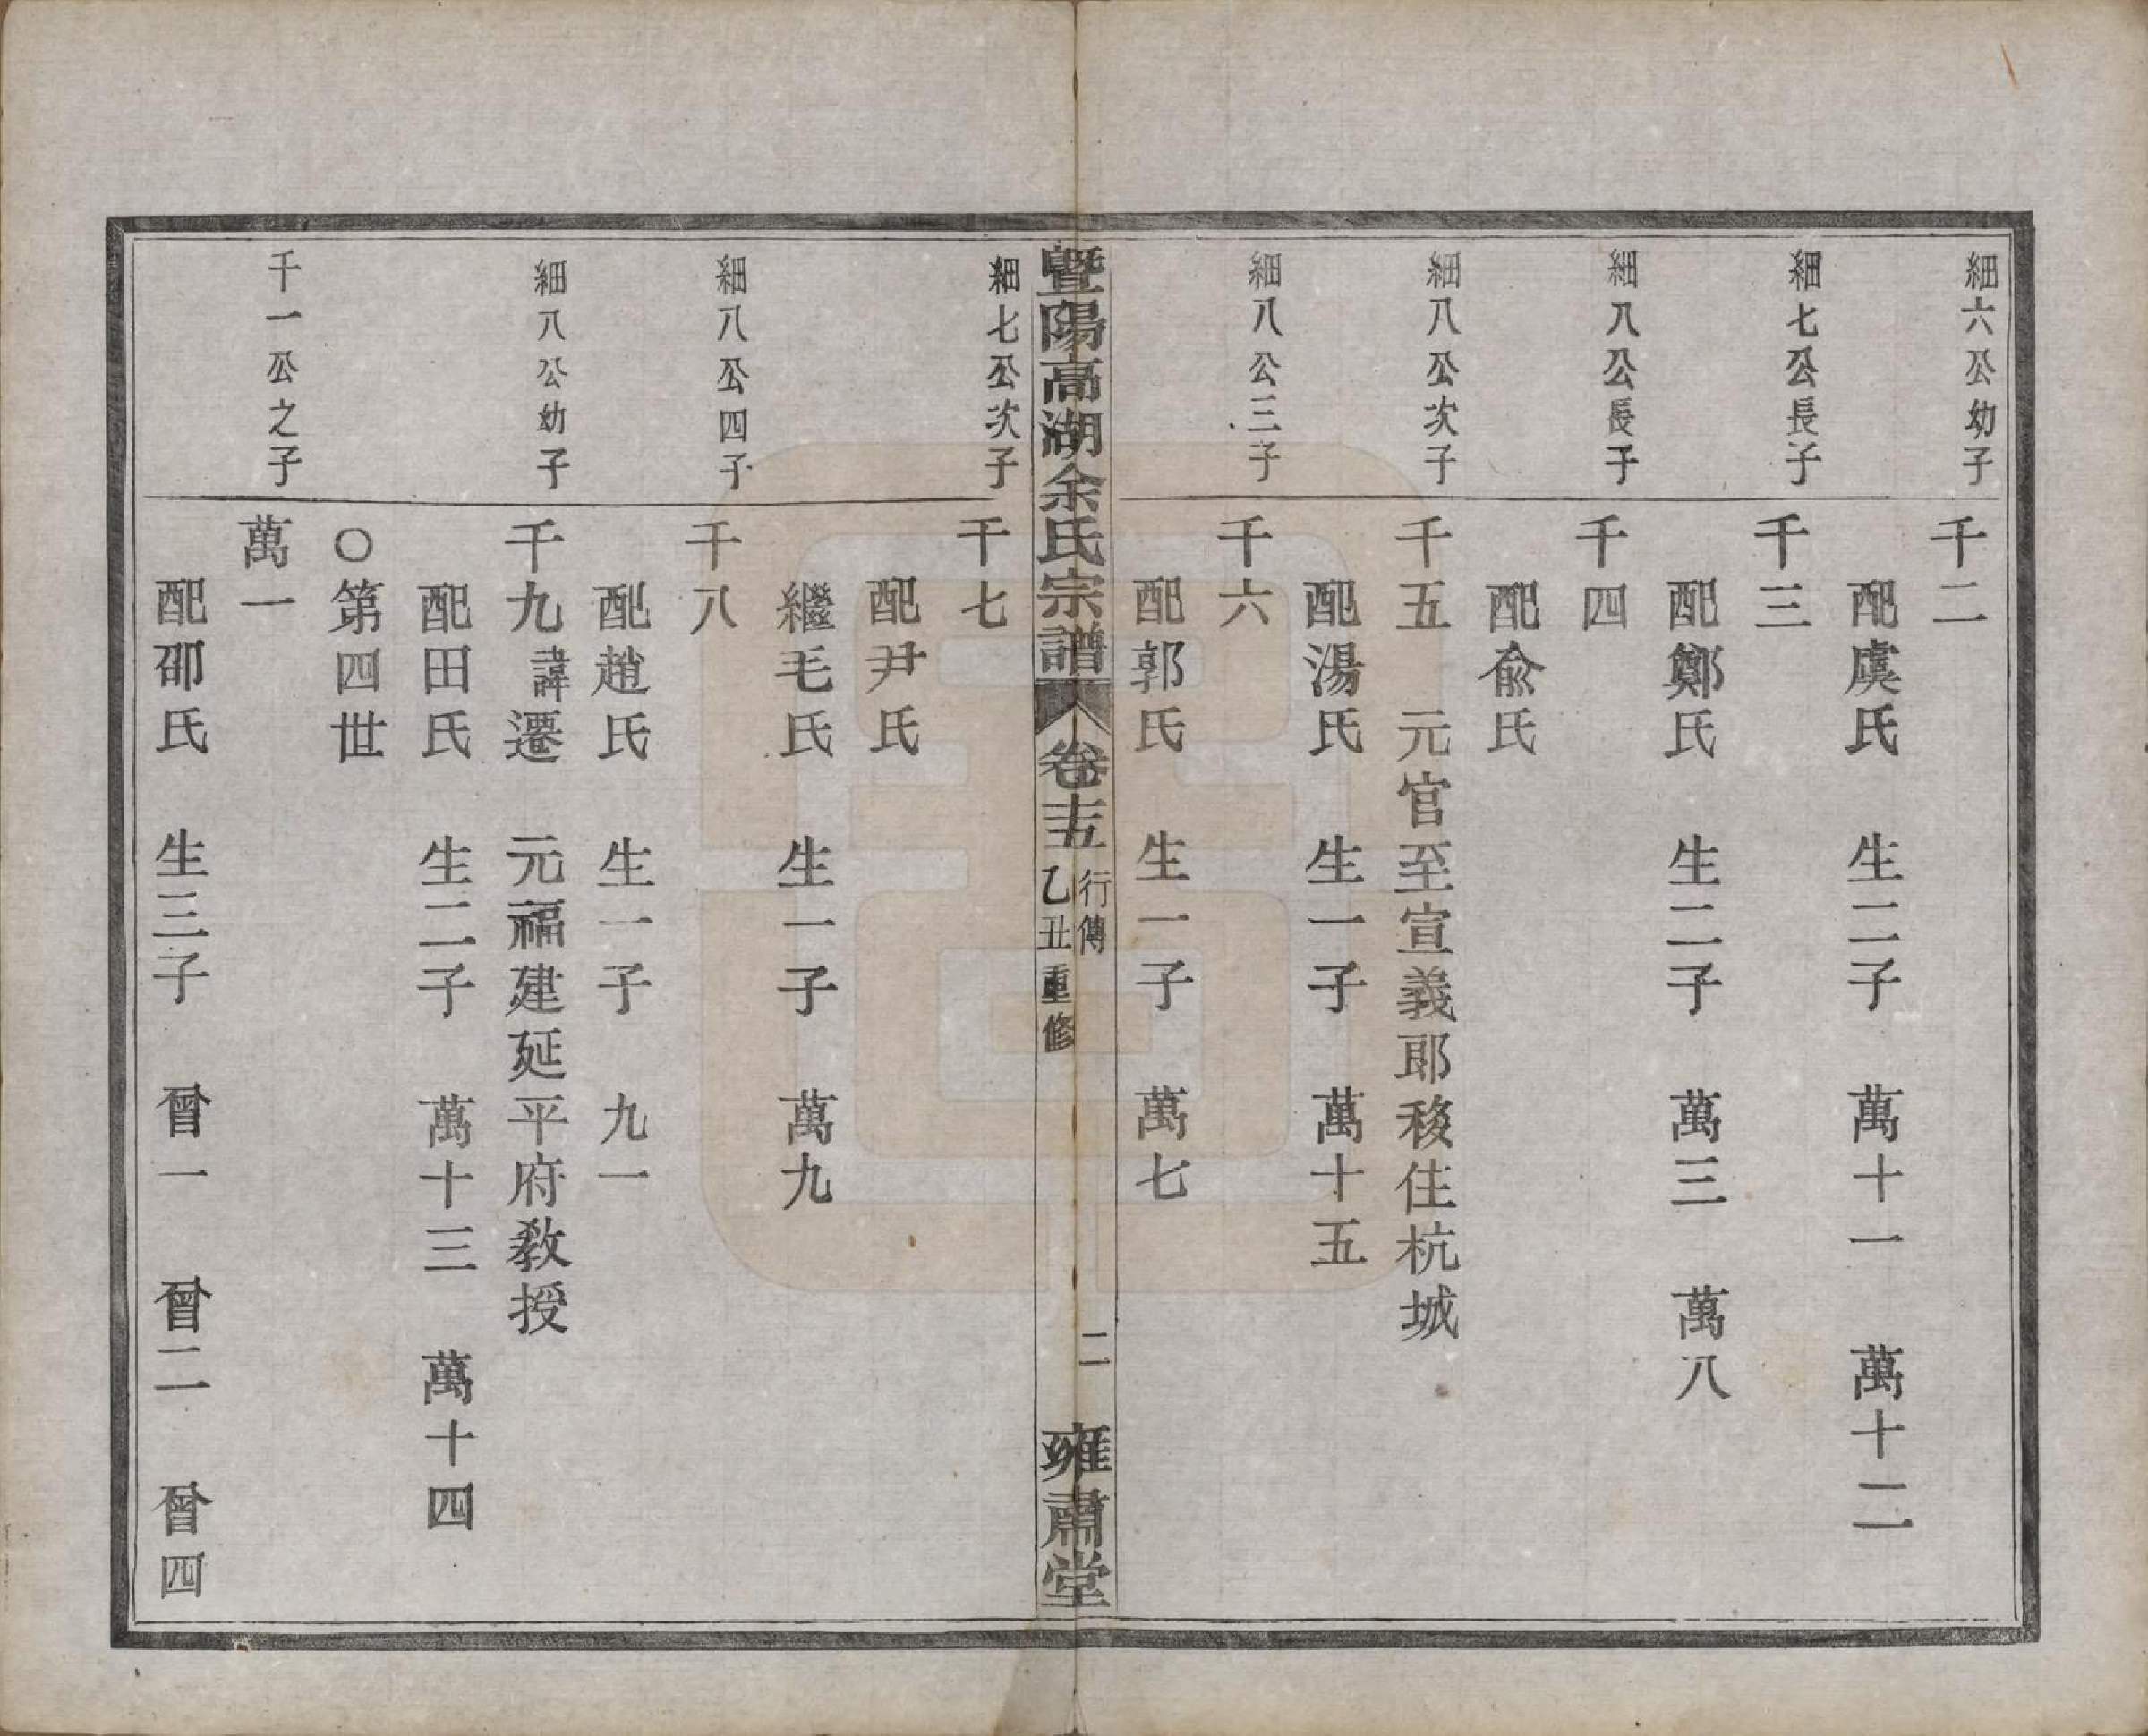 細六公幼子
千二
配虞氏　生二子　萬十一　萬十二
細七公長子
千三
配鄭氏　生二子　萬三　萬八
細八公長子
千四
配俞氏
細八公次子
千五　元官至宣義郎移住杭城
配湯氏　生一子　萬十五
細八公三子
千六
配郭氏　生一子　萬七
暨陽高湖余氏宗譜　卷十五　行傳　乙丑重修　二　雍肅堂
細七公次子
千七
配尹氏
繼毛氏　生一子　萬九
細八公四子
千八
配趙氏　生一子　九一
細八公幼子
千九諱遷　元福建延平府教授
配田氏　生二子　萬十三　萬十四
○第四世
千一公之子
萬一
配邵氏　生三子　曾一　曾二　曾四